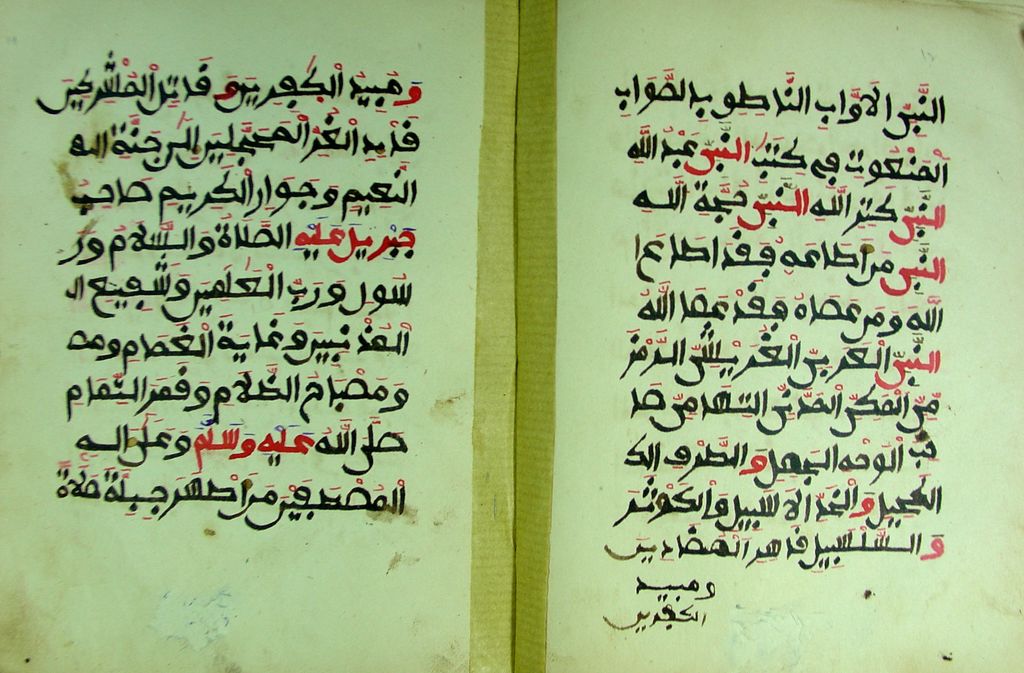 النَّبِىّ الاَوَّابِ النَّاطِقِ بِالصَّوَابِ
الْمَنْعُوتِ فِى كِتَٰبِ النَّبِىّ عَبْدُ اللَّهِ
النَّبِىّ كَنْزُ اللَّه النَّبِىّ حُجَّةُ اللَّه
النَّبِىّ مَنَ اَطَاعَهُ فَقَدَ اطَاعَ ا
اللَّهَ وَمَن عَصَاهُ فَقَدْ عَصَا اللَّهَ
النَّبِىّ الْعَرَبِىّ الْقُرَيْشِىّ الزَّمْزَ
مِىّ الْمَكِّىّ الْمَدَنِىّ التِّهَامِىّ صَا
حِبِ الْوَجْهِ الْجَمِيل وَالطَّرْفِ الك
الكَحِيلِ وَالْخَدِّ الاَسِيلِ وَالْكَوْثَر
وَالسَّلْسَبِيلِ قَاهِرِ الْمُضَادِينَ
ومبيد
الكٰفرين
وَمُبِيدِ الْكَٰفِرِينَ وَقَاتِلِ الْمُشْرِكِينَ
قَآئِدِ الْغُرِّ الْمُحَجَّلِينَ اِلَى جَنَّةِ اله
النَّعِيمِ وَجِوَارِ الْكَرِيمِ صَاحِبِ
جِبْرِيلَ عَلَيْهِ الصَّلَاةُ وَالسَّلَامُ وَرَ
سُولِ وَرَبِّ الْعَٰلَمِينَ وَشَفِيعِ ال
الْمُذْنِبِينَ وَغَايَةِ الْغَمَامِ ومص
وَمِصْبَاحِ الظَّلَامِ وَقَمَرِ التَّمَامِ
صَلَّى اللَّهُ عَلَيْهِ وَسَلَّمَ وَعَلَى اله
الْمُصْطَفَيْنَ مِنَ اَطْهَرِ جِبِلَّةٍ صَلَاةً